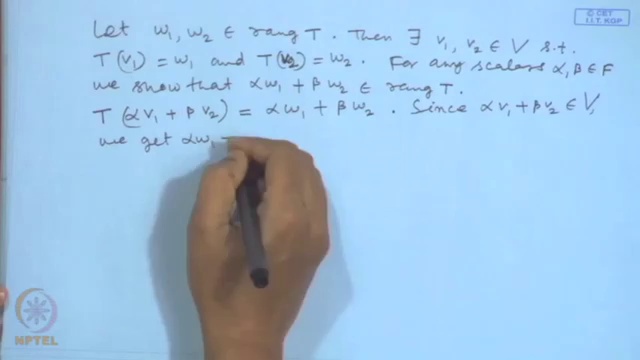 © CET
I.I.T. KGP
Let w₁, w₂ ∈ rang T. Then ∃ v₁, v₂ ∈ V s.t.
T(v₁) = w₁ and T(v₂) = w₂. For any scalars α, β ∈ F
we show that αw₁ + βw₂ ∈ rang T.
T(αv₁ + βv₂) = αw₁ + βw₂. Since αv₁ + βv₂ ∈ V,
we get αw₁
NPTEL